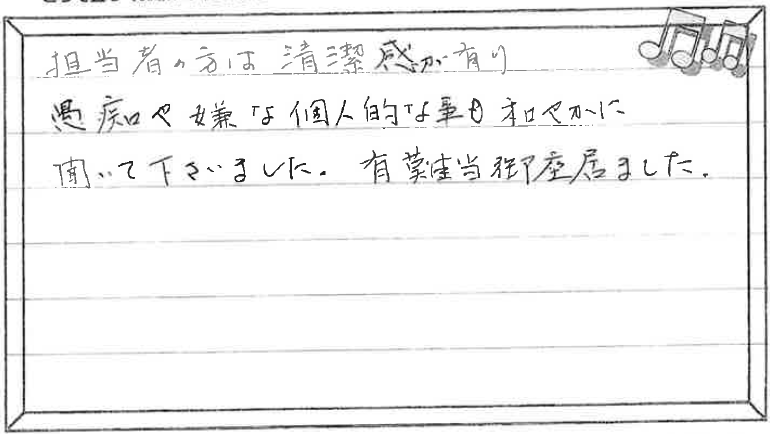 担当者の方は清潔感が有り
愚痴や嫌な個人的な事も和やかに
聞いて下さいました。有難当御座居ました。